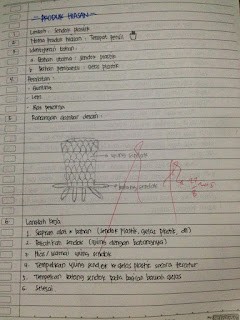 PRODUK HIASAN
1. Limbah : Sendok plastik
2. Nama produk hiasan : Tempat pensil
3. Identifikasi bahan :
a. Bahan utama : sendok plastik
b. Bahan pembantu : Gelas plastik
4. Peralatan :
- Gunting
- Lem
- Alat pewarna
5. Rancangan gambar desain :
ujung sendok
batang sendok
6. Langkah kerja
1. Siapkan alat & bahan (sendok plastik, gelas plastik, dll)
2. Patahkan sendok (ujung dengan batangnya)
3. Beri warna ujung sendok
4. Tempelkan ujung sendok ke gelas plastik secara teratur
5. Tempelkan batang sendok pada bagian bawah gelas
6. Selesai